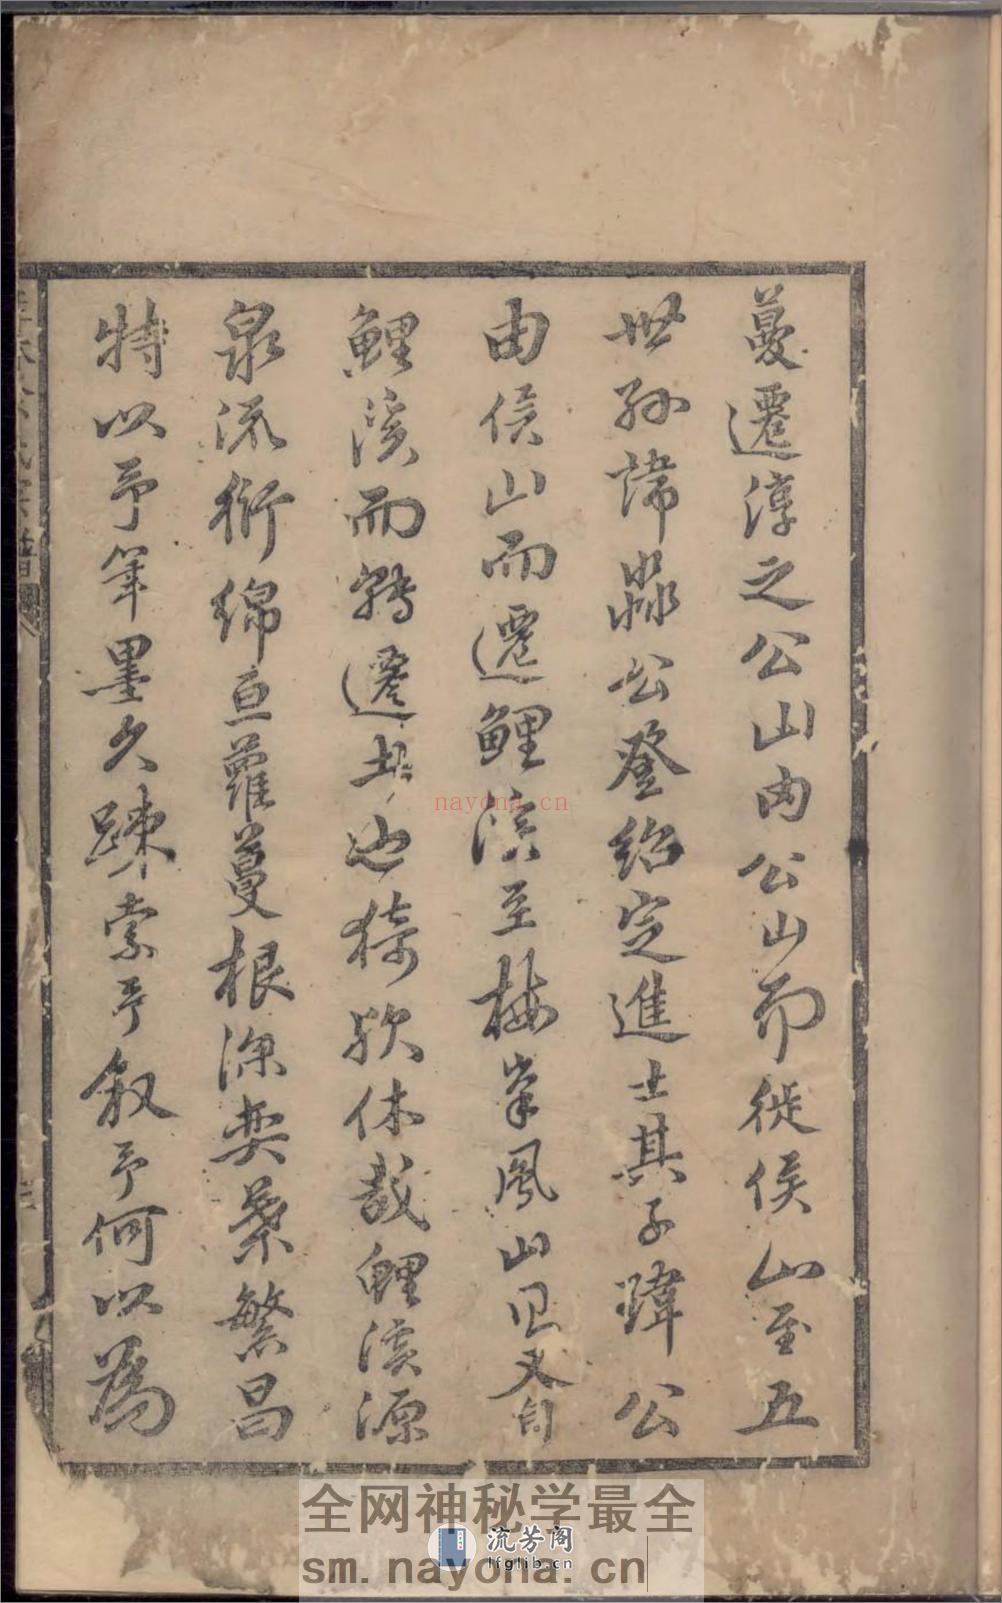 蔓遷淳之公山內公山而徙侯山至五
世孫諱㵒公登紹定進士其子瑋公
由侯山而遷鯉溪至梅峯風山
鯉溪而轉遷也猗歟休哉鯉溪源
泉流衍綿亘蘿蔓根深奕葉繁昌
特以予筆墨久疎索予叙予何以爲
nayona.cn
全网神秘学最全
流芳阁
lfglib.cn
sm.nayona.cn